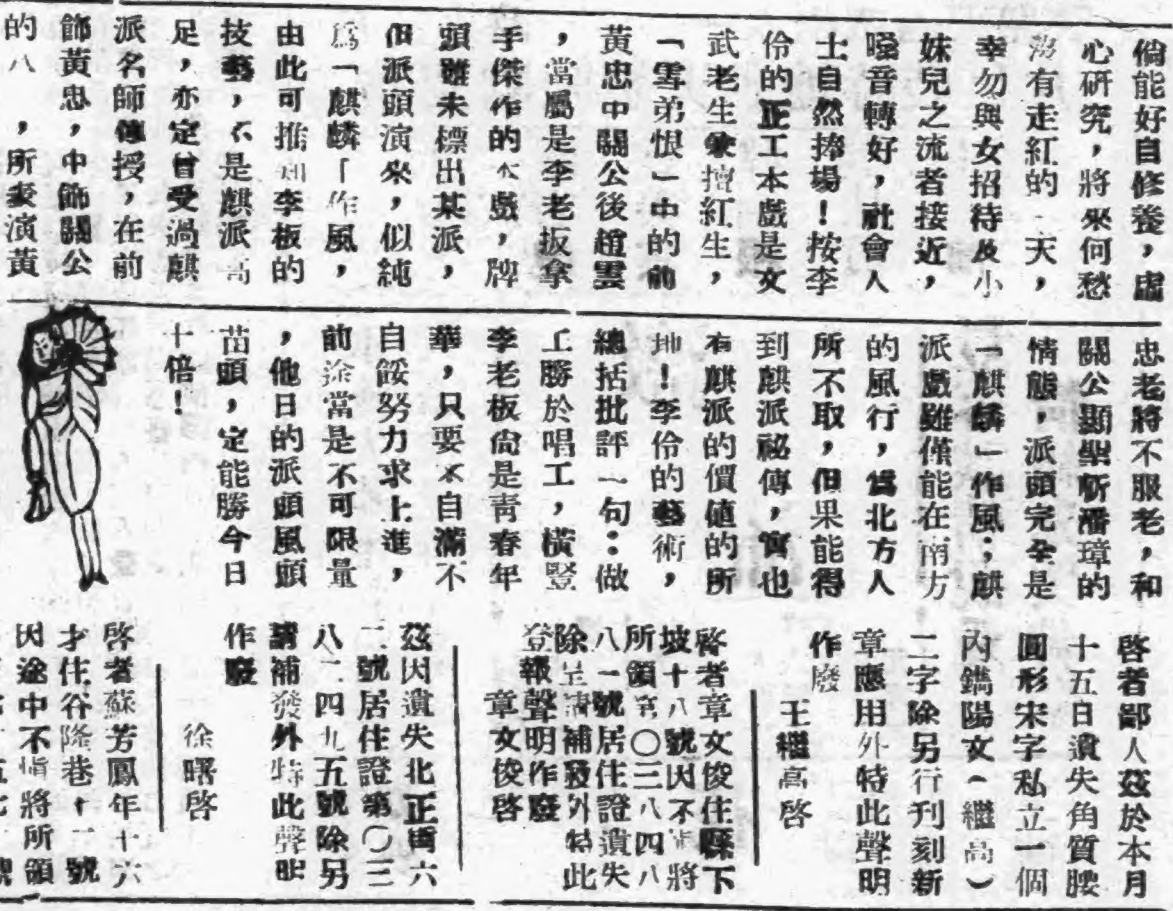 倘能好自修養，虛
心研究，將來何愁
沒有走紅的一天，
幸勿與女招待及小
妹兒之流者接近，
嗓音轉好，社會人
士自然捧塲！按李
伶的正工本戲是文
武老生兼擅紅生，
「雪弟恨」中的前
黃忠中關公後趙雲
，當屬是李老扳拿
手傑作的本戲，牌
頭雖未標出某派，
但派頭演來，似純
爲「麒麟「作風，
由此可推知李板的
技藝，不是麒派高
足，亦定曾受過麒
派名師傳授，在前
飾黃忠，中飾關公
的八　，所表演黃
忠老將不服老，和
關公顯聖斬潘璋的
情態，派頭完全是
「麒麟」作風；麒
派戲雖僅能在南方
的風行，爲北方人
所不取，但果能得
到麒派祕傳，實也
有麒派的價値的所
抻！李伶的藝術，
總括批評一句：做
工勝於唱工，橫豎
李老板尙是靑春年
華，只要不自滿不
自餒努力求上進，
前途當是不可限量
，他日的派頭風頭
苗頭，定能勝今日
十倍！
啓者鄙人茲於本月
十五日遺失角質腰
圓形宋字私立一個
內鐫陽文（繼高）
二字除另行刊刻新
章應用外特此聲明
作廢
王繼高啓
啓者章文俊住縣下
坡十八號因不愼將
所領字〇三八四八
八一號居住證遺失
除呈請補發外特此
登報聲明作廢
章文俊啓
茲因遺失北正街六
二號居住證第〇三
八二四九五號除另
請補發外特此聲明
作廢
徐曙啓
啓者蘇芳鳳年十六
才住谷隆巷十二號
因途中不愼將所領